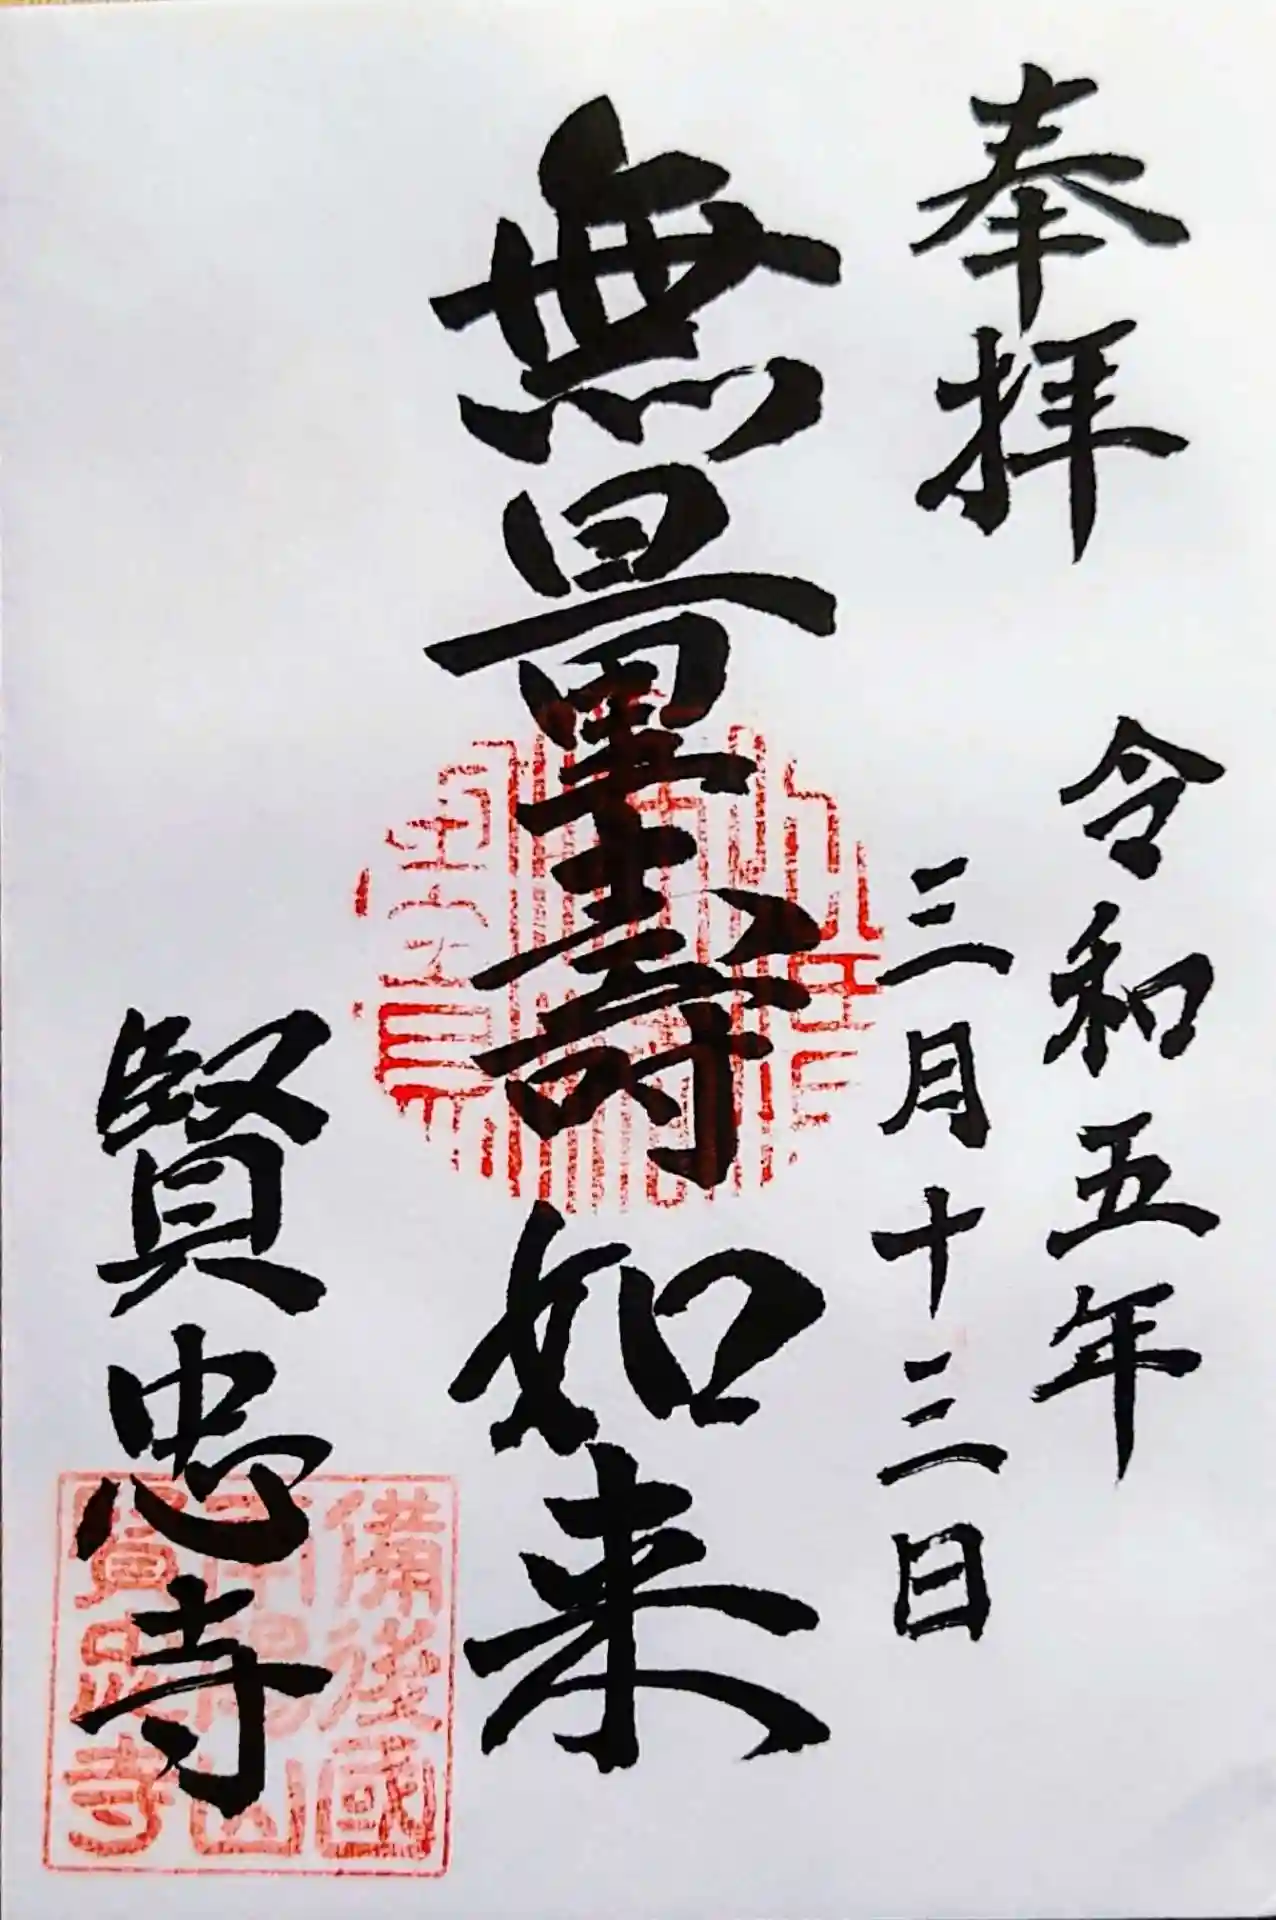 奉拝
令和五年
三月十三日
無量壽如来
賢忠寺
備後國
南陽山
賢忠寺